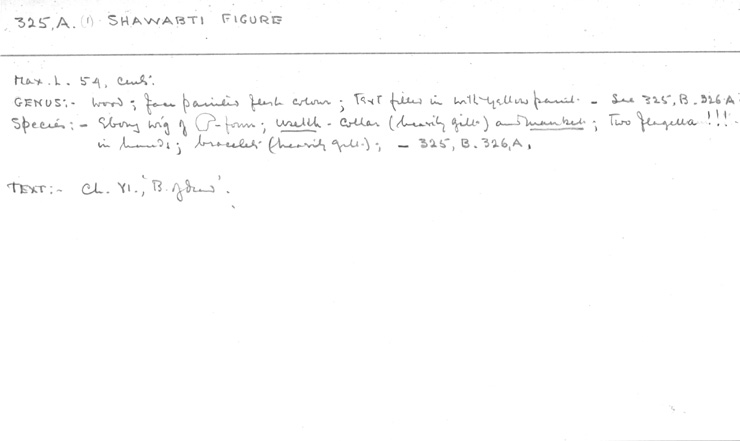 325,A. (1) SHAWABTI FIGURE
Max. h. 54, cents.
GENUS:- Wood; face painted flesh colour; Text filled in with yellow paint. - See 325,B. 326,A
Species:- Ebony wig of -form; wselkh-collar (heavily gilt) and mankhet; Two flagella !!!-
in hands; bracelets (heavily gilt); - 325, B. 326,A,
TEXT:- Ch. VI., 'B. of dead'.